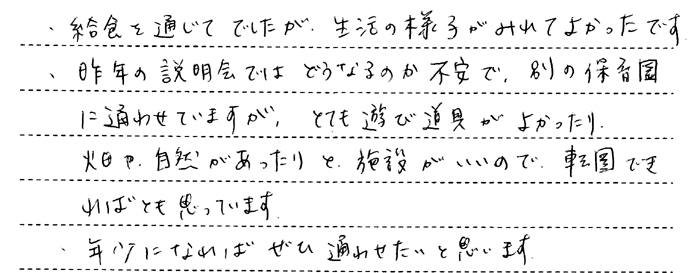 ・給食を通じてでしたが、生活の様子がみれてよかったです
、昨年の説明会ではどうなるのか不安で、別の保育園
に通わせていますが、とても遊び道具がよかったり、
畑や、自然があったりと、施設がいいので、転園でき
ればとも思っています。
・年少になればぜひ通わせたいと思います。